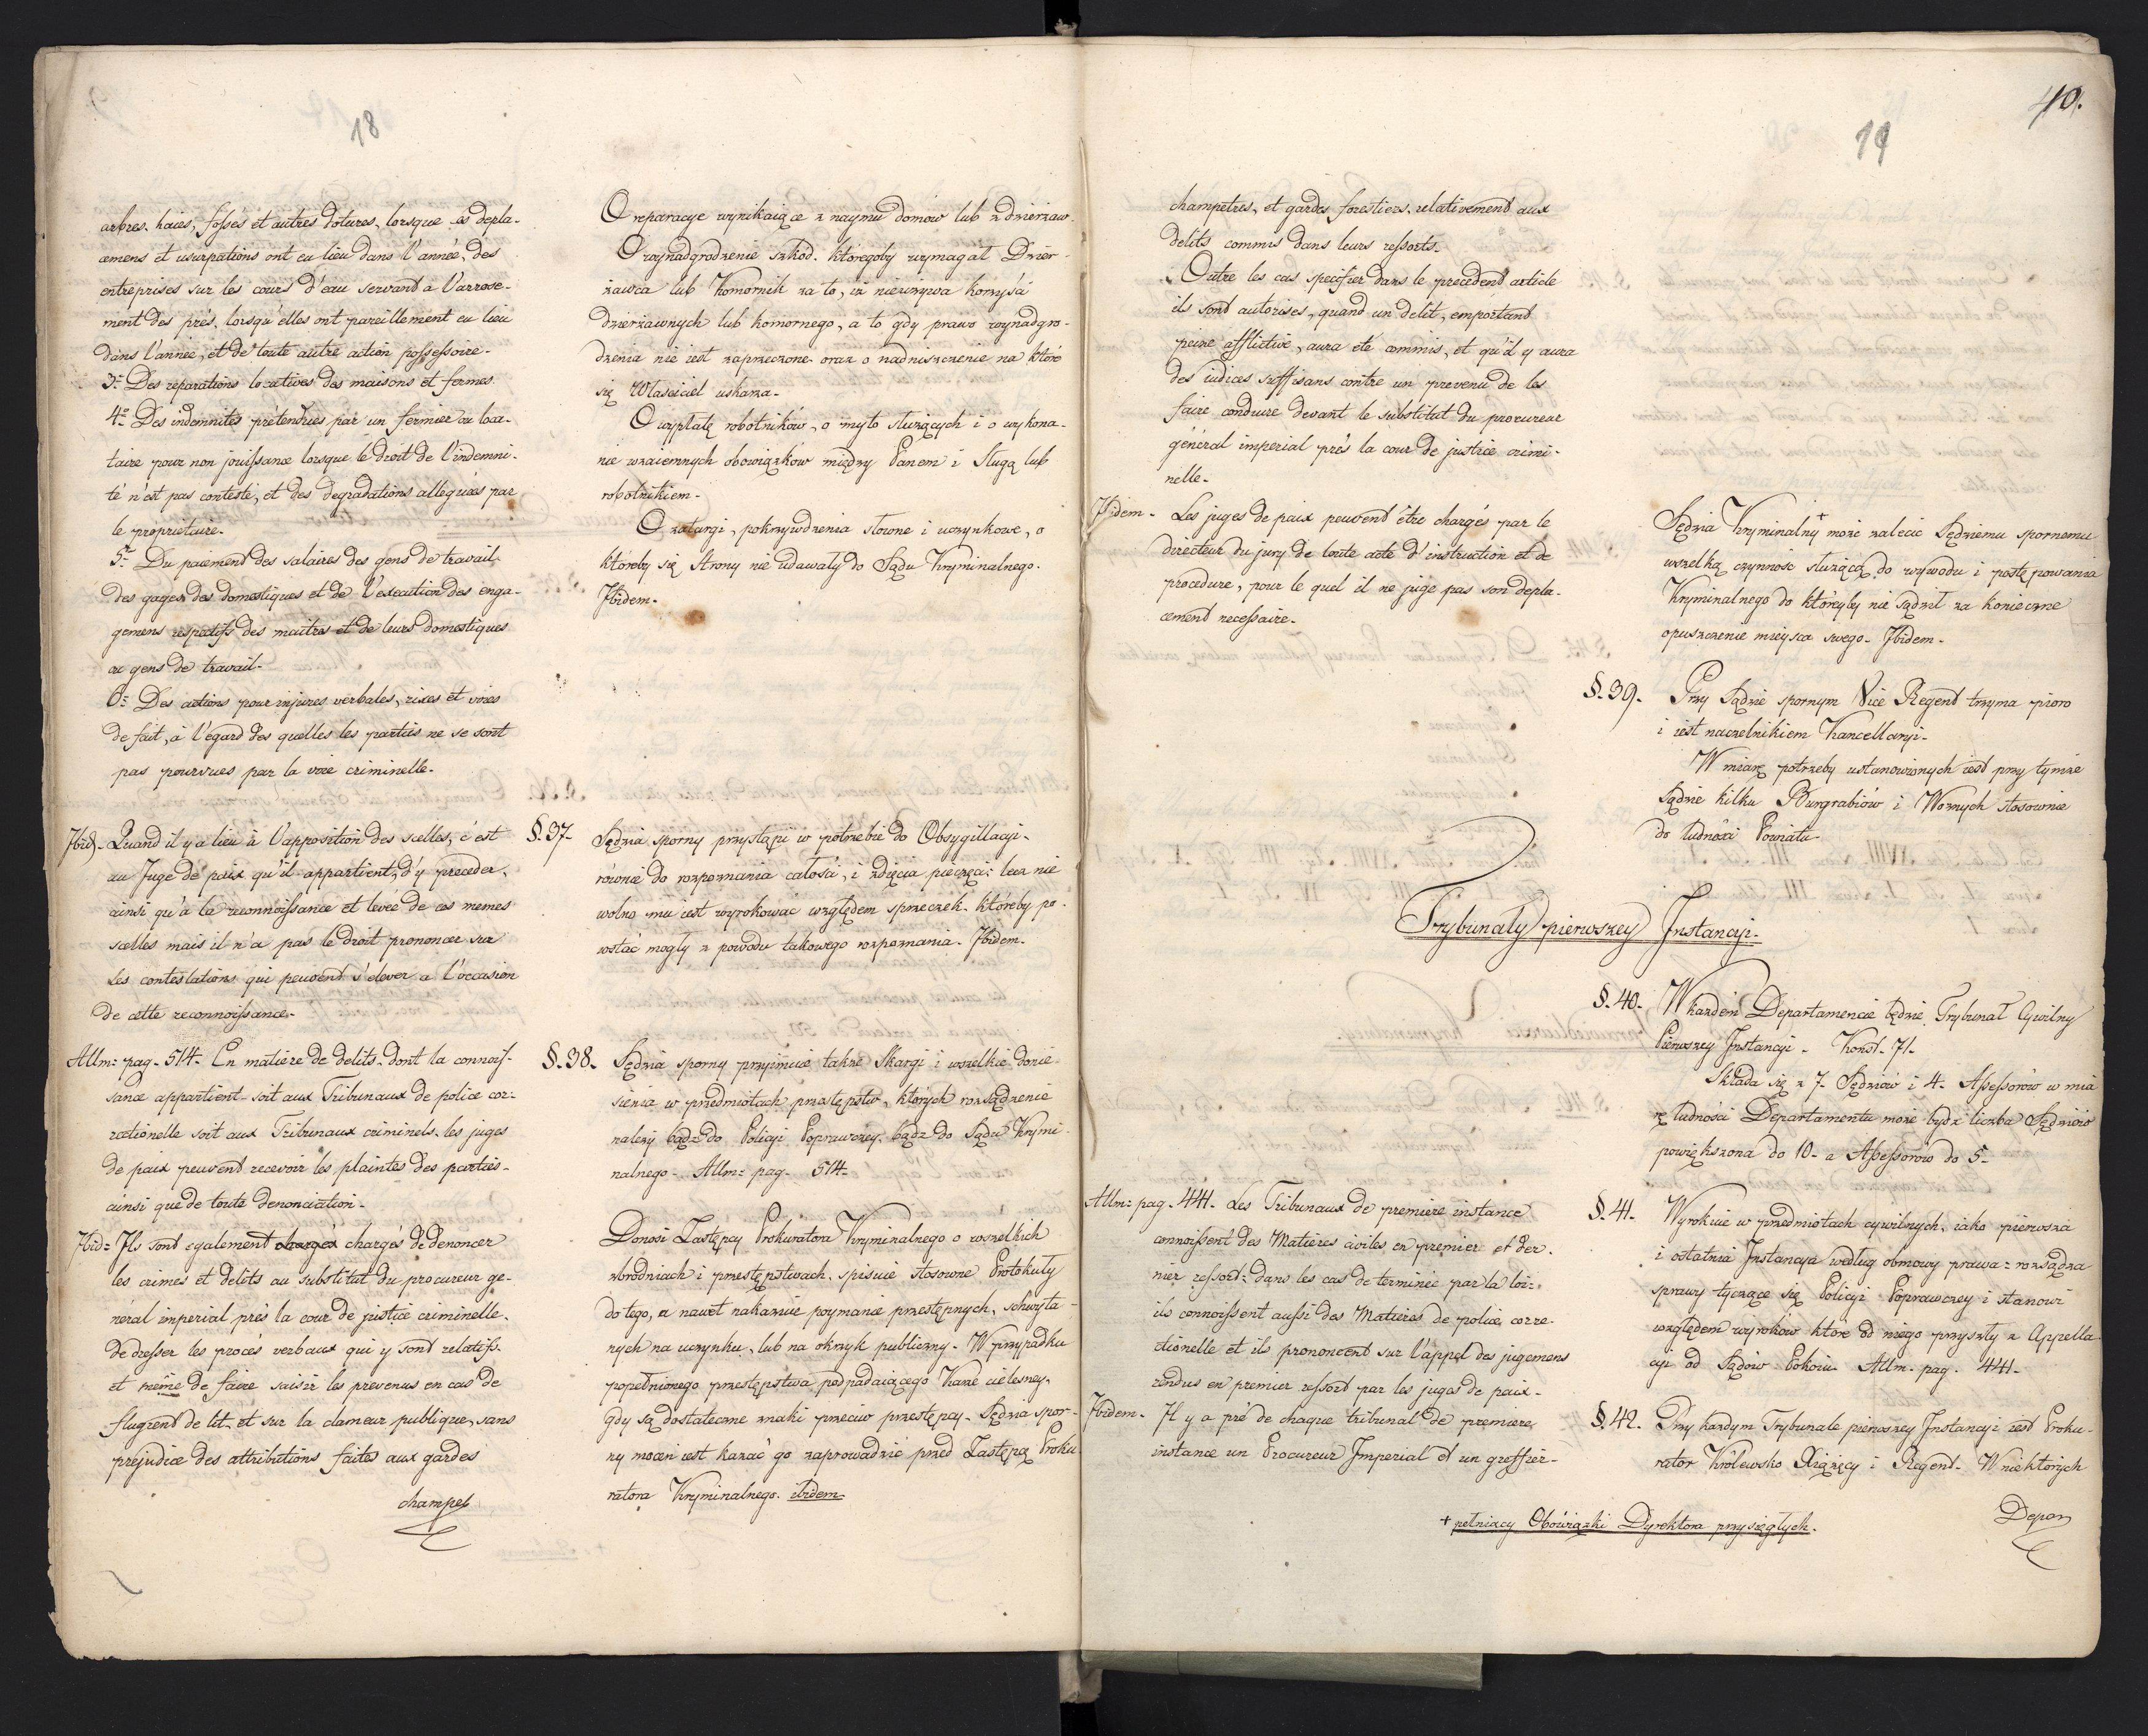 18
arbres, haies, fossés et autres clotures, lorsque les depla-
cemens et usurpations ont eu lieu dans l'année, des
entreprises sur les cours d'eau servant a l'arrose-
ment des prés, lorsqu'elles ont pareillement eu lieu
dans l'année, et de toute autre action possessoire.
3º Des reparations locatives des maisons et fermes.
4º Des indemnités prétendues par un fermier ou loca-
taire pour non jouissance lorsque le droit de l'indemni-
té n'est pas contesté, et des degradations alleguées par
le proprietaire.
5º Du paiement des salaires des gens de travail
des gages des domestiques et de l'execution des enga-
gemens respectifs des maitres et de leurs domestiques
ou gens de travail.
6º Des actions pour injures verbales, rixes et voies
de fait, à l'égard des quelles les parties ne se sont
pas pourvues par la voie criminelle.
Ibid. Quand il y a lieu à l'apposition des scelles, c'est
au Juge de paix qu'il appartient, d'y proceder,
ainsi qu'à la reconnoissance et levée de ces memes
scelles mais il n'a pas le droit prononcer sur
les contestations qui peuvent s'elever a l'occasion
de cette reconnoissance.
Allm: pag. 514. En matiere de delits dont la connois-
sance appartient soit aux Tribunaux de police cor-
rectionelle soit aux Tribunaux criminels, les juges
de paix peuvent recevoir les plaintes des parties
ainsi que de toute denonciation.
Ibid: Ils sont egalement chargés chargés de denoncer
les crimes et delits au substitut du procureur ge-
néral imperial près la cour de justice criminelle.
de dresser les procés verbaux qui y sont relatifs.
et même de faire saisir les prevenus en cas de
flagrent de lit et sur la clameur publique, sans
préjudice des attributions faites aux gardes
champet
O reparacye wynikaiące z naymu domów lub z dzierżaw.
O wynadgrodzenie szkód, któregoby wymagał Dzier-
żawca lub Komornik za to, iż nieużywa korzyści
dzierżawnych lub komornego, a to gdy prawo wynadgro-
dzenia nie iest zaprzeczone oraz o nadniszczenie na które
się Własciciel uskarza.
O wypłatę robotników, o myto służących i o wykona-
nie wzaiemnych obowiązków między Panem i Sługą lub
robotnikiem.
O zatargi, pokrzywdzenia słowne i uczynkowe, o
któreby się Strony nie udawały do Sądu Kryminalnego.
Ibidem.
§. 37. Sędzia sporny przystąpi w potrzebie do Obsygillacyi.
równie do rozpoznania całości, i zdięcia pieczęci: lecz nie
wolno mu iest wyrokować względem sprzeczek, któreby po-
wstać mogły z powodu takowego rozpoznania. Ibidem.
§. 38. Sędzia sporny przyimuie także Skargi i wszelkie donie-
sienia w przedmiotach przestępstw, których rozsądzenie
należy bądz do Policyi Poprawczey, bądz do Sądu Krymi-
nalnego. Allm: pag. 514.
Donosi Zastępcy Prokuratora Kryminalnego o wszelkich
zbrodniach i przestępstwach, spisuie stosowne Protokuły
do tego, a nawet nakazuie poymanie przestępnych, schwyta-
nych na uczynku, lub na okrzyk publiczny. W przypadku
popełnionego przestępstwa podpadaiącego Karze cielesney,
gdy są dostateczne znaki przeciw przestępcy. Sędzia spor-
ny mocen iest kazać go zaprowadzić przed Zastępcę Proku-
ratora Kryminalnego. ibidem.
40.
19
champetres, et gardes forestiers, relativement aux
delits commis dans leurs ressorts.
Outre les cas specifier dans le precedent article
ils sont autorises, quand un delit, emportant
peine afflictive, aura eté commis, et qu'il y aura
des indices suffisans contre un prevenu de les
faire conduire devant le substitut du procureur
général imperial près la cour de justice crimi-
nelle.
Ibidem. Les juges de paix peuvent être chargés par le
directeur du jury de toute acte d'instruction et de
procedure, pour le quel il ne juge pas son depla-
cement necessaire.
Sędzia Kryminalny + może zalecic Sędziemu spornemu
wszelką czynność służącą do wywodu i postępowania
Kryminalnego do któreyby nie sądził za konieczne
opuszczenie mieysca swego. Ibidem.
§. 39. Przy Sądzie spornym Vice Regent trzyma pioro
i iest naczelnikiem Kancellaryi.
W miarę potrzeby ustanowionych iest przy tymże
Sądzie kilku Burgrabiów i Woznych stosownie
do ludności Powiatu
Trybunały pierwszey Instancyi.
§. 40. W kazdem Departamencie będzie Trybunał Cywilny
Pierwszey Instancyi. Konst. 71.
Składa się z 7. Sędziów i 4. Assessorów w mia
rę ludności Departamentu może bydz liczba Sędziów
powiększona do 10. a Assessorów do 5.
Allm: pag. 441. Les Tribunaux de premiere instance
connoissent des Matiéres civiles en premier et der-
nier ressort: dans les cas determinée par la loi:
ils connoissent aussi des Matieres de police corre-
ctionelle et ils prononcent sur l'appel des jugemens
rendus en premier ressort par les juges de paix.
§. 41. Wyrokuie w przedmiotach cywilnych, iako pierwsza
i ostatnia Instancya według obmowy prawa: rozsądza
sprawy tyczące się Policyi Poprawczey i stanowi
względem wyroków które od niego przyszły z Appella-
cyi od Sądów Pokoiu. Allm. pag. 441.
Ibidem. Il y a pré de chaque tribunal de premiere
instance un Procureur Imperial et un greffier.
§. 42. Przy kazdym Trybunale pierwszey Instancyi iest Proku-
rator Królewsko Xiążęcy i Regent. W niektorych
+ pełniący Obowiązki Dyrektora przysięgłych.
Depar